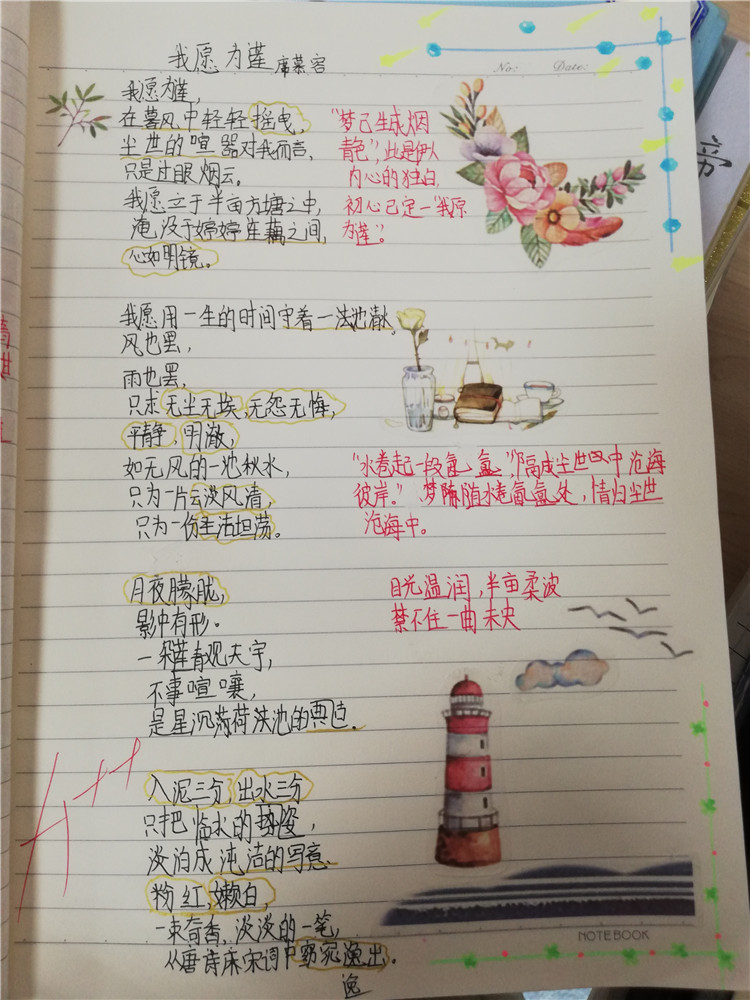 我愿为莲 席慕容
No: Date:
我愿为莲,
在暮风中轻轻摇曳,
尘世的喧器对我而言,
只是过眼烟云。
我愿立于半亩方塘之中,
淹没于婷婷莲藕之间,
心如明镜。
"梦已生成烟
青色",此是伊人
内心的独白,
初心已定一"我原
为莲"。
我愿用一生的时间守着一池清水,
风也罢,
雨也罢,
只求无尘无埃,无怨无悔,
平静,明澈,
如无风的一池秋水,
只为一片云淡风清,
只为一份生活坦荡。
"水卷起一段氤氲","隔成尘世中沧海
彼岸。"梦随水卷氤氲处,情归尘世
沧海中。
月夜朦胧,
影中有形。
一朵莲有观天宇,
不事喧嚷,
是星沉荷洪池的典迹.
目光温润,半亩柔波
禁不住一曲未央
A++
入泥三分,出水三分
只把临水的姿,
淡泊成沌洁的写意.
粉红,嫩白,
一束奇香,淡淡的一笔,
从唐诗床宋词中窈宛逸出.
逸
NOTEBOOK